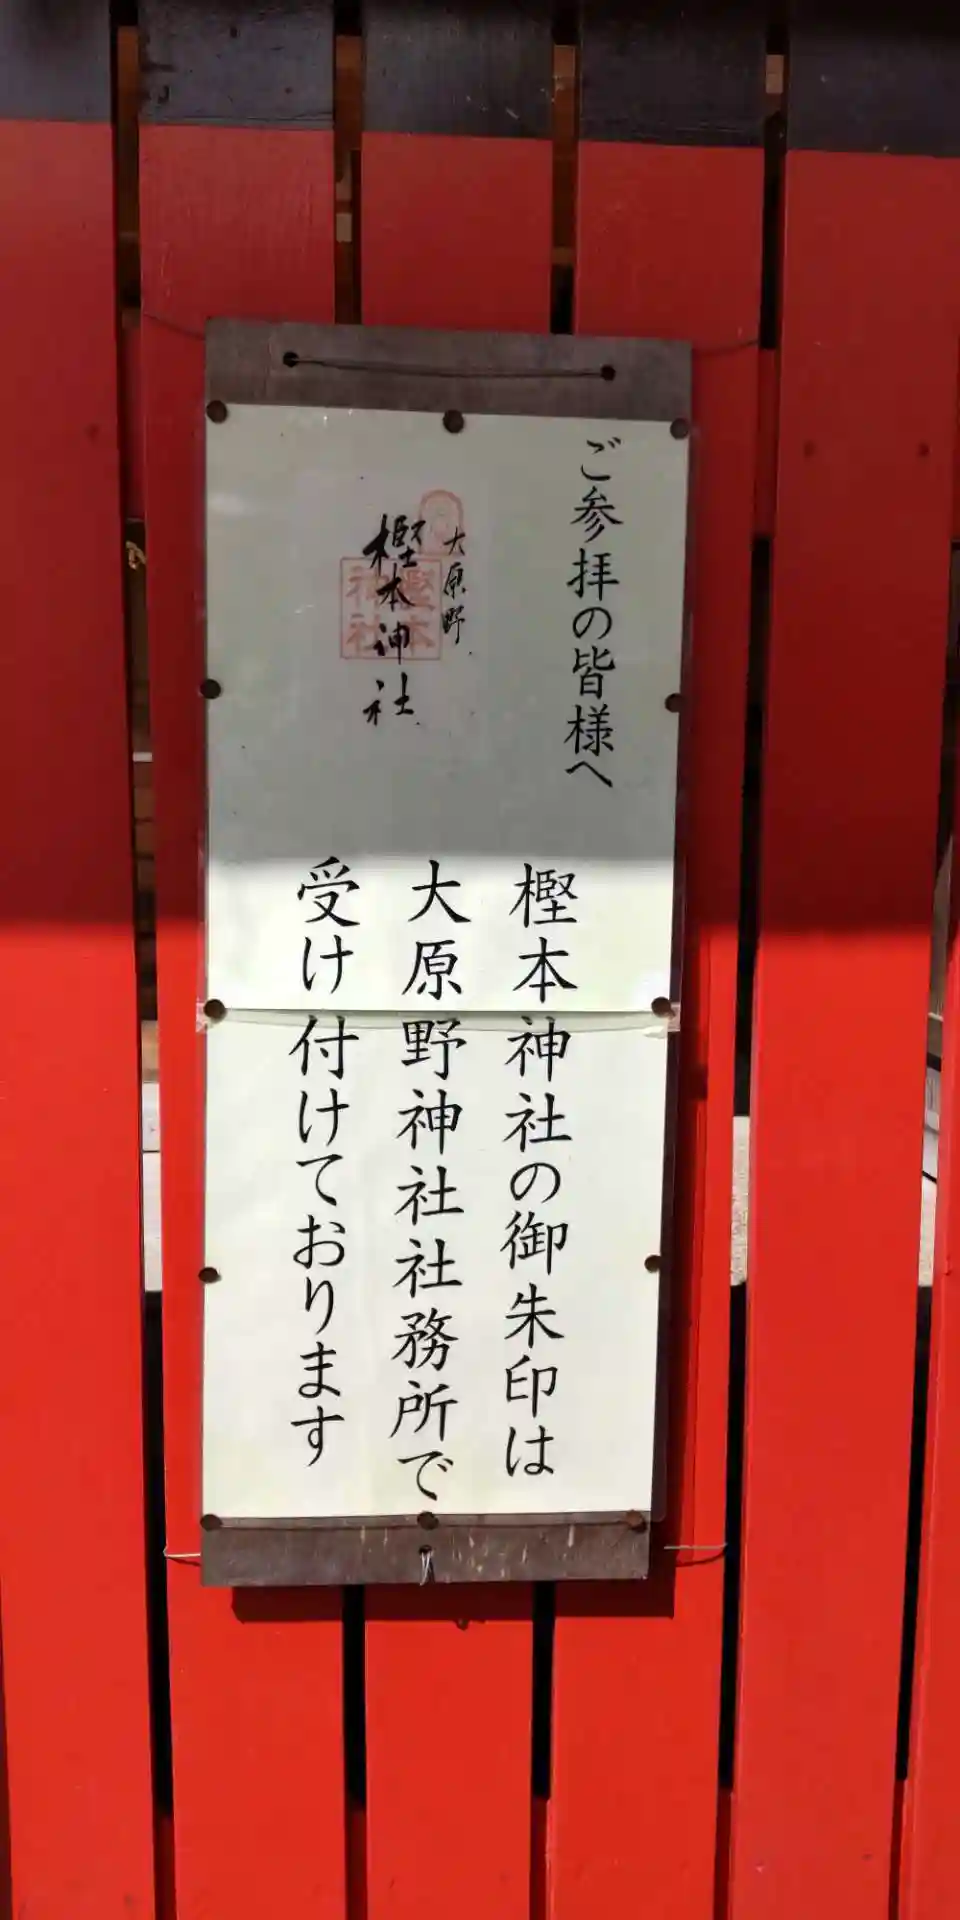 ご参拝の皆様へ
大原野
樫本神社
樫本神社
樫本神社の御朱印は
大原野神社社務所で
受け付けております